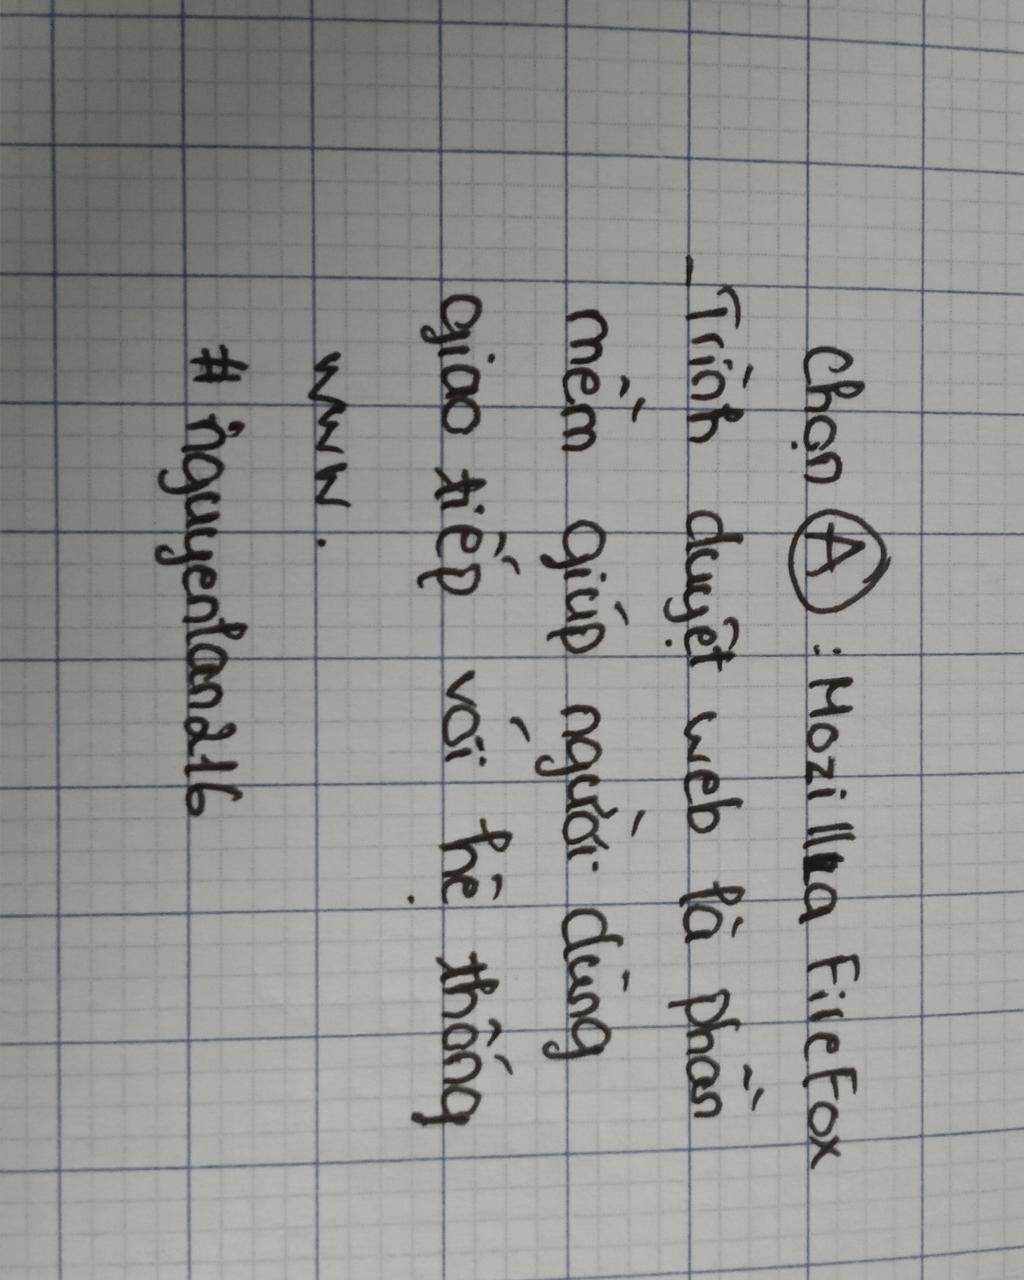 Chọn A : Mozilla FireFox
- Trình duyệt web là phần
mềm giúp người dùng
giao tiếp với hệ thống
www.
# nguyenlan216